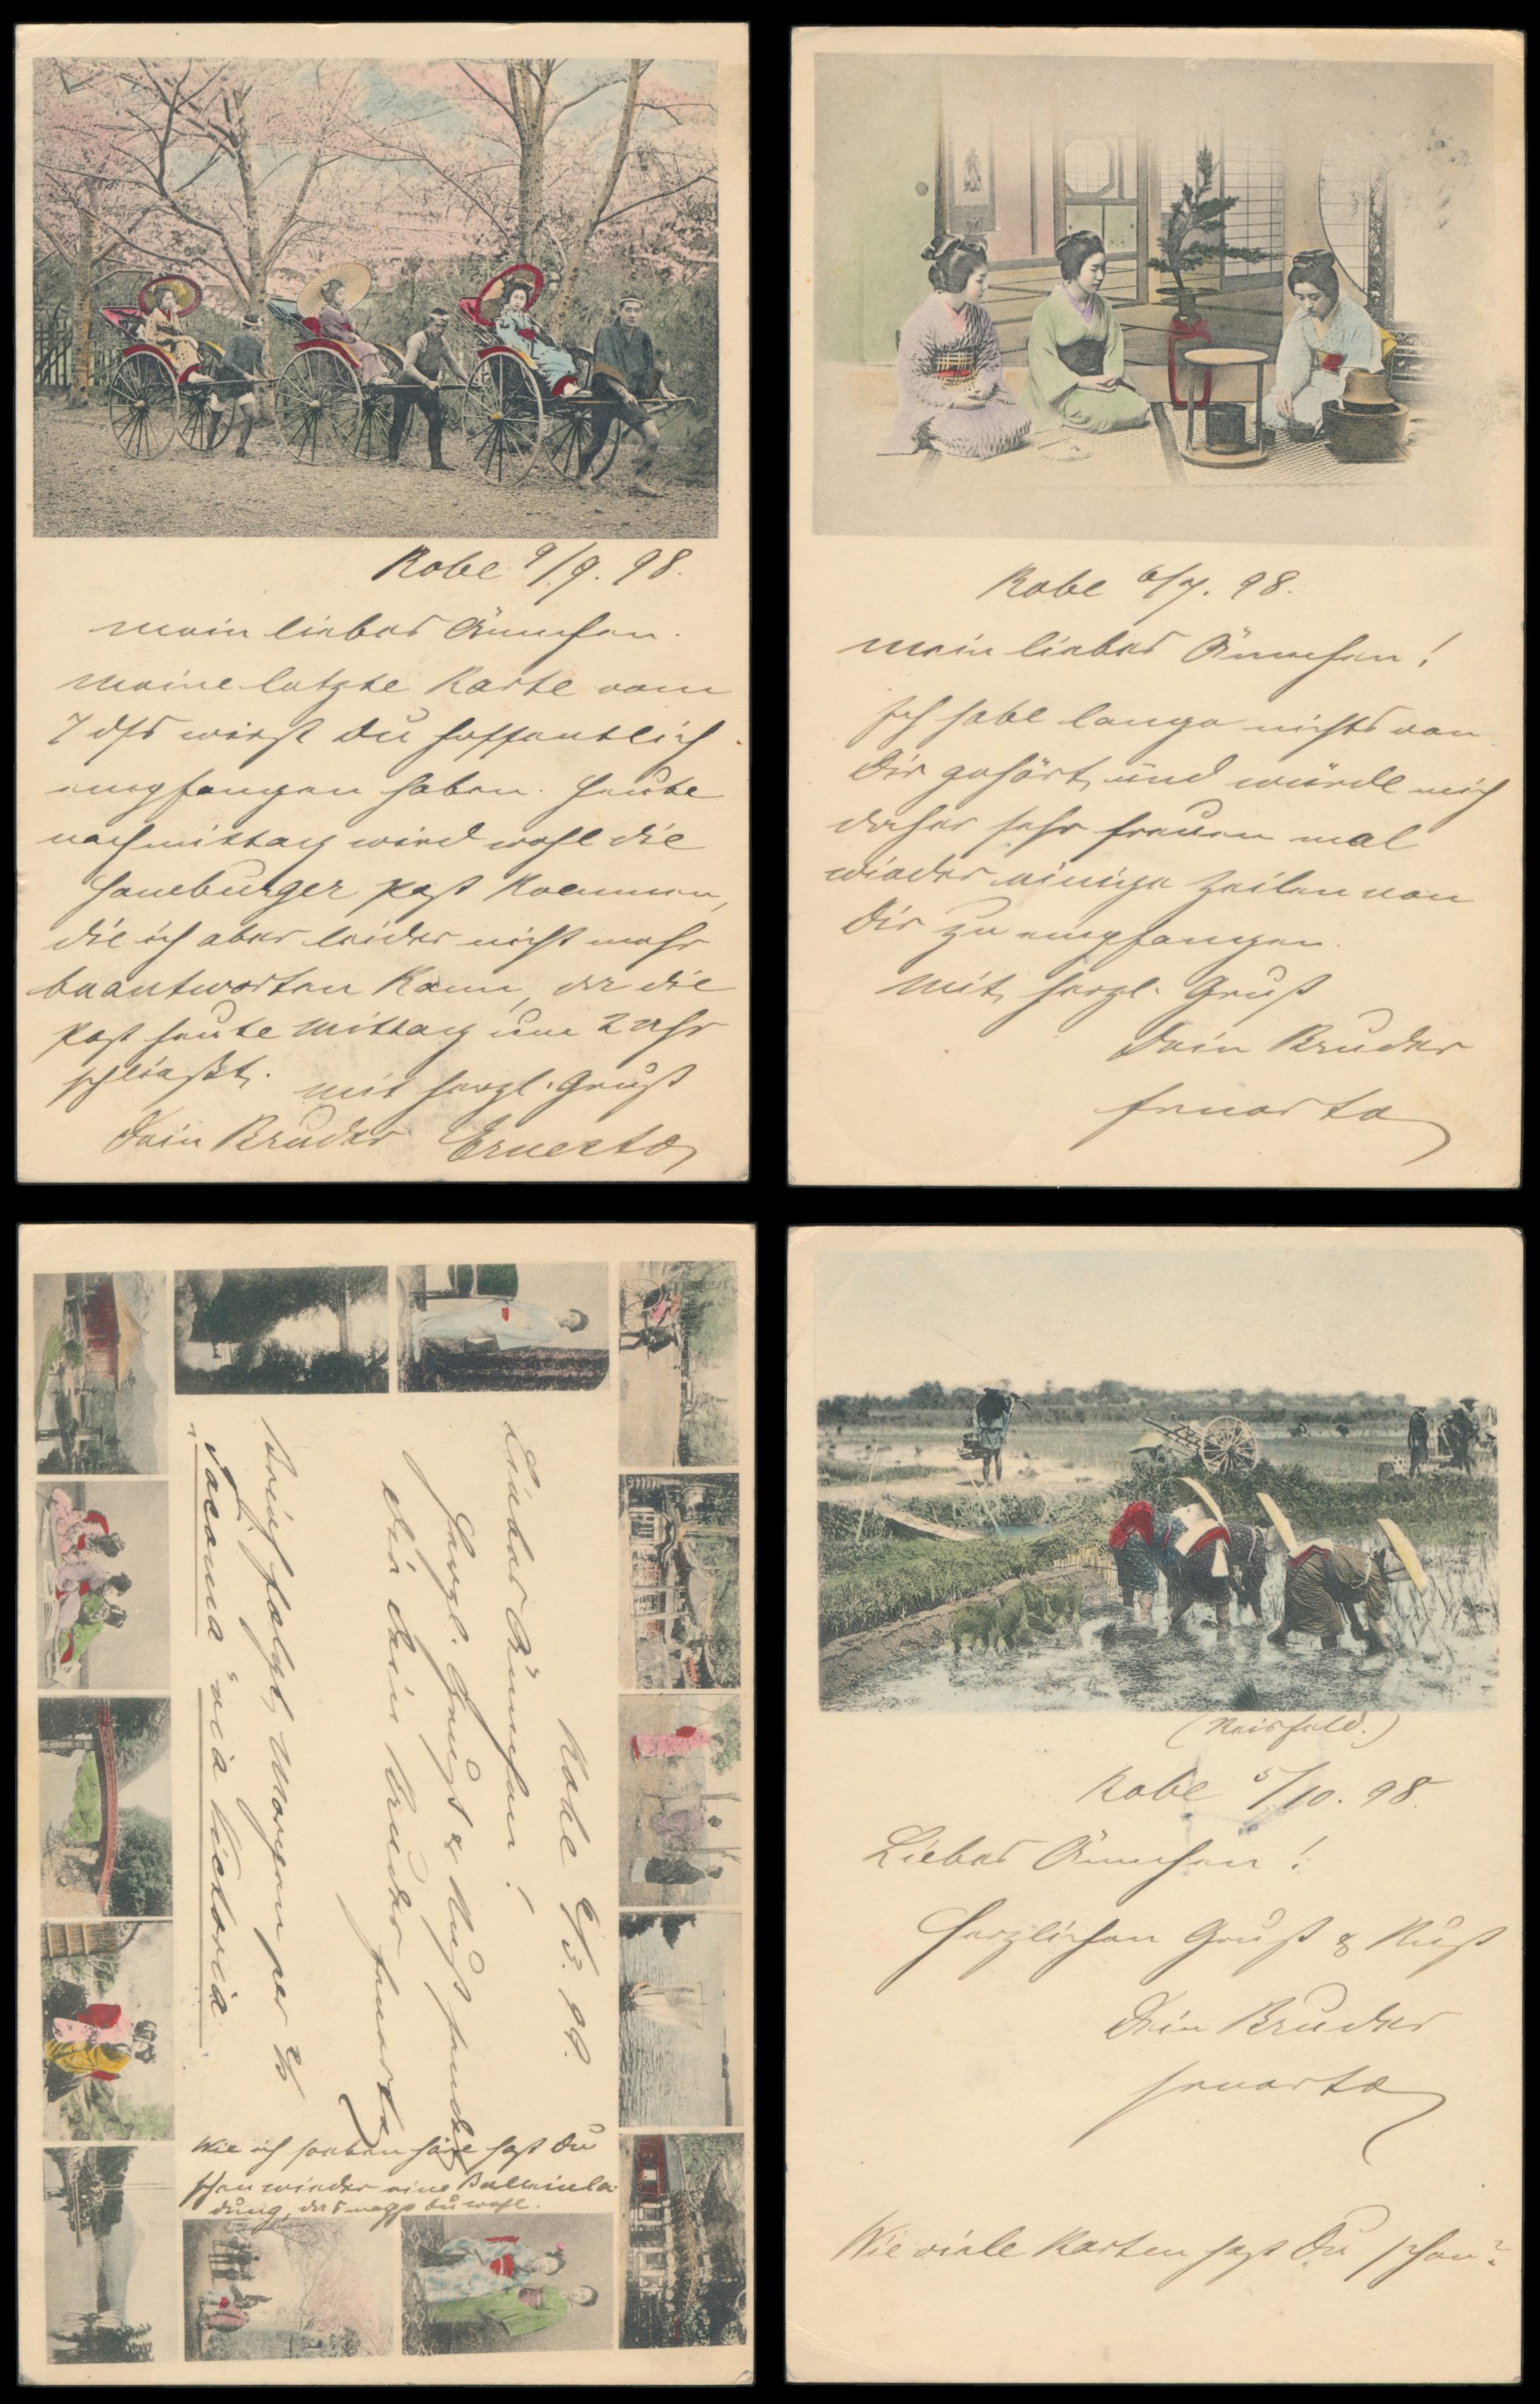 Kobe 9/9. 98.
Mein liebes Ännchen.
Meine letzte Karte vom
7 dss wirst Du hoffentlich
empfangen haben. Heute
nachmittag wird wohl die
Post kommen,
die ich aber leider nicht mehr
beantworten kann, da die
Post heute Mittag um 2 Uhr
schließt. Mit herzl. Gruß
Dein Bruder Ernesto
Kobe 6/7. 98.
Mein liebes Ännchen!
Ich habe lange nichts von
Dir gehört, und würde mich
daher sehr freuen mal
wieder einige Zeilen von
Dir zu empfangen.
Mit herzl. Gruß
Dein Bruder
Ernesto
Kobe 9/3. 99.
Liebes Ännchen!
Herzl. Gruß & Kuß sendet
Dir Dein Bruder Ernesto
Brief folgt Morgen per D/S
"Tacoma" via Victoria
Wie ich soeben höre hast Du
schon wieder eine Balleinla-
dung, das magst Du wohl.
(Reisfeld.)
Kobe 5/10. 98.
Liebes Ännchen!
Herzlichen Gruß & Kuß
Dein Bruder
Ernesto
Wie viele Karten hast Du schon?